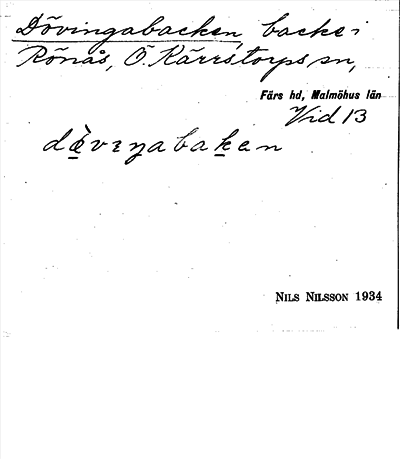 Dövingabacken, backe i
Rönås, Ö. Kärrstorps sn,
Färs hd, Malmöhus län
Vid 13
dø̀vɪŋabakan
NILS NILSSON 1934